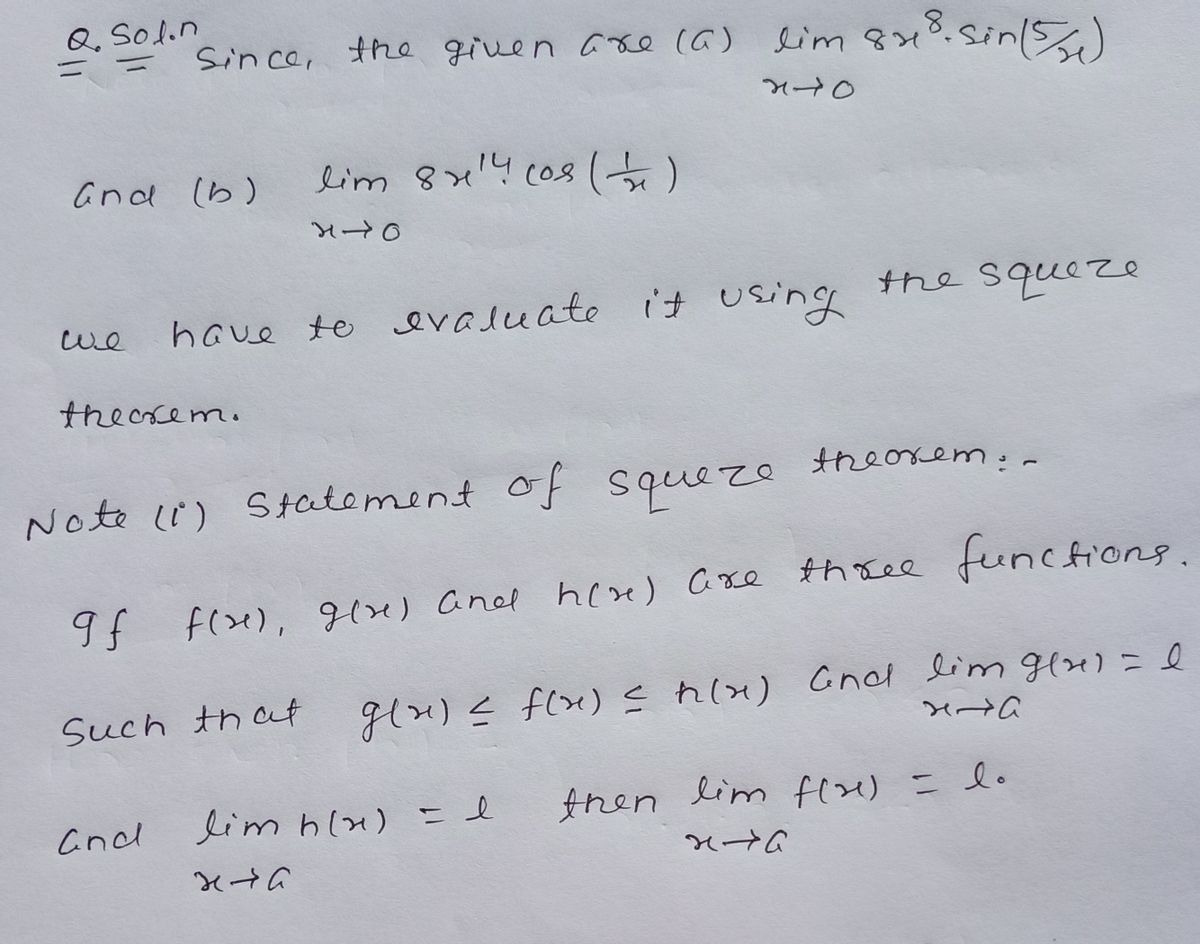 Q. Sol.n Since, the given are (a) lim 8x⁸. sin(5/x)
x→0
and (b) lim 8x¹⁴. cos (1/x)
x→0
we have to evaluate it using the squeze
theorem.
Note (i) Statement of squeze theorem:-
If f(x), g(x) and h(x) are three functions.
Such that g(x) ≤ f(x) ≤ h(x) and lim g(x) = l
x→a
and lim h(x) = l then lim f(x) = l.
x→a x→a